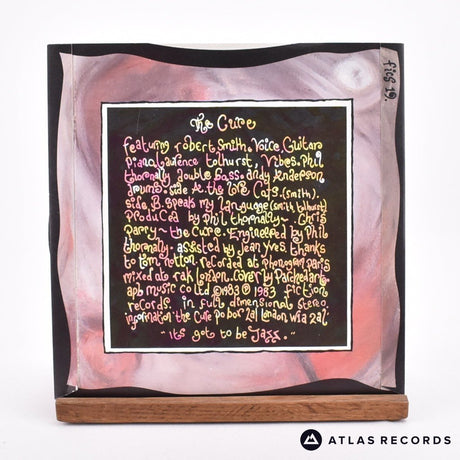 fig 19.
The Cure
featuring robert Smith. Voice, Guitar
piano. Laurence tolhurst, Vibes. Phil
thornally double bass. andy anderson
drums. side A. the love Cats. (smith).
side B. speak my language (smith tolhurst)
Produced by phil thornally ~ . Chris
parry ~ the Cure. Engineered by Phil
thornally. assisted by jean yves thanks
to tom. recorded at phonogram paris
mixed at rak london. cover by Parchedart.
apb music co ltd ©1983 ℗ 1983 fiction
records in full dimensional stereo
information the Cure po box 2al london w1a 2al
"its got to be Jazz."
ATLAS RECORDS